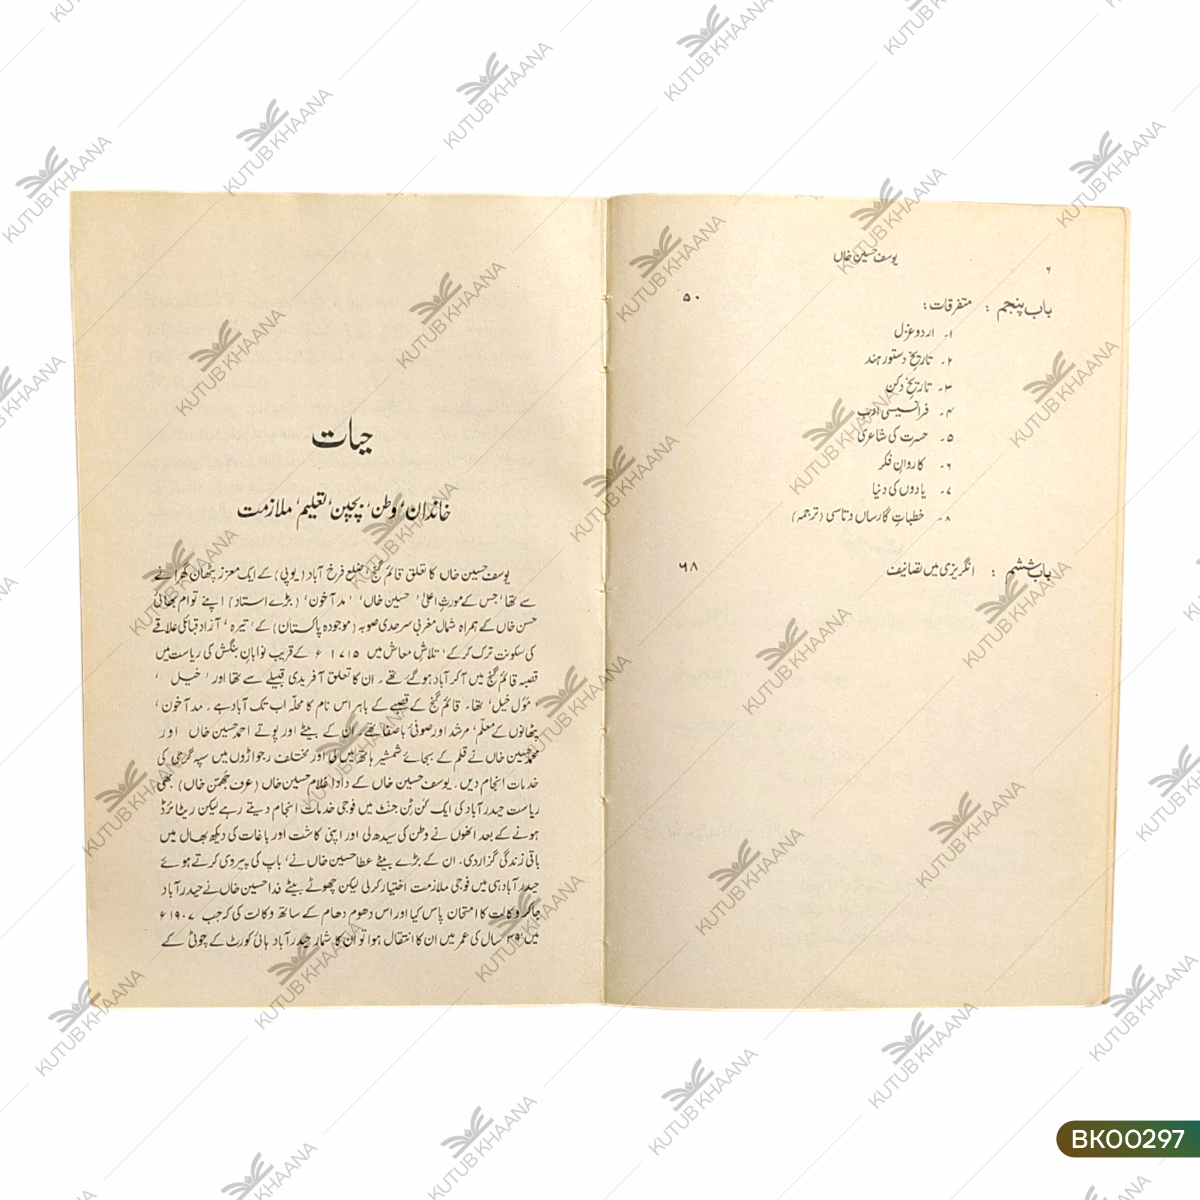 یوسف حسین خاں
۶
باب پنجم : متفرقات: ۵۰
۱۔ اردو غزل
۲۔ تاریخ دستور ہند
۳۔ تاریخ دکن
۴۔ فرانسیسی ادب
۵۔ حسرت کی شاعری
۶۔ کاروانِ فکر
۷۔ یادوں کی دنیا
۸۔ خطباتِ گارساں دتاسی (ترجمہ)
باب ششم : انگریزی میں تصانیف ۶۸
حیات
خاندان، وطن، بچپن، تعلیم، ملازمت
یوسف حسین خاں کا تعلق قائم گنج، ضلع فرخ آباد (یوپی) کے ایک معزز پٹھان گھرانے
سے تھا، جس کے مورثِ اعلیٰ، حسین خاں، 'مد آخون' (بڑے استاد) اپنے توام بھائی
حسن خاں کے ہمراہ شمال مغربی سرحدی صوبہ (موجودہ پاکستان) کے 'تیرہ' آزاد قبائلی علاقے
کی سکونت ترک کر کے، تلاشِ معاش میں ۱۷۱۵ء کے قریب نوابانِ بنگش کی ریاست میں
قصبہ قائم گنج میں آ کر آباد ہو گئے تھے۔ ان کا تعلق آفریدی قبیلے سے تھا اور 'خیل'
'مؤل خیل' تھا۔ قائم گنج کے قصبے کے باہر اس نام کا محلہ اب تک آباد ہے۔ مد آخون،
پٹھانوں کے معلّم، مرشد اور صوفیٔ باصفا تھے۔ ان کے بیٹے اور پوتے احمد حسین خاں اور
محمد حسین خاں نے قلم کے بجائے شمشیر ہاتھ میں لی اور مختلف رجواڑوں میں سپہ گرجی کی
خدمات انجام دیں۔ یوسف حسین خاں کے دادا غلام حسین خاں (عرف جھمّن خاں) بھی
ریاست حیدر آباد کی ایک کن ٹن جنٹ میں فوجی خدمات انجام دیتے رہے لیکن ریٹائرڈ
ہونے کے بعد انھوں نے وطن کی سیدھ لی اور اپنی کاشت اور باغات کی دیکھ بھال میں
باقی زندگی گزار دی۔ ان کے بڑے بیٹے عطا حسین خاں نے، باپ کی پیروی کرتے ہوئے
حیدر آباد ہی میں فوجی ملازمت اختیار کر لی لیکن چھوٹے بیٹے فدا حسین خاں نے حیدر آباد
جا کر وکالت کا امتحان پاس کیا اور اس دھوم دھام کے ساتھ وکالت کی کہ جب ۱۹۰۷ء
میں ۳۹ سال کی عمر میں ان کا انتقال ہوا تو ان کا شمار حیدر آباد ہائی کورٹ کے چوٹی کے
KUTUB KHAANA
BK00297